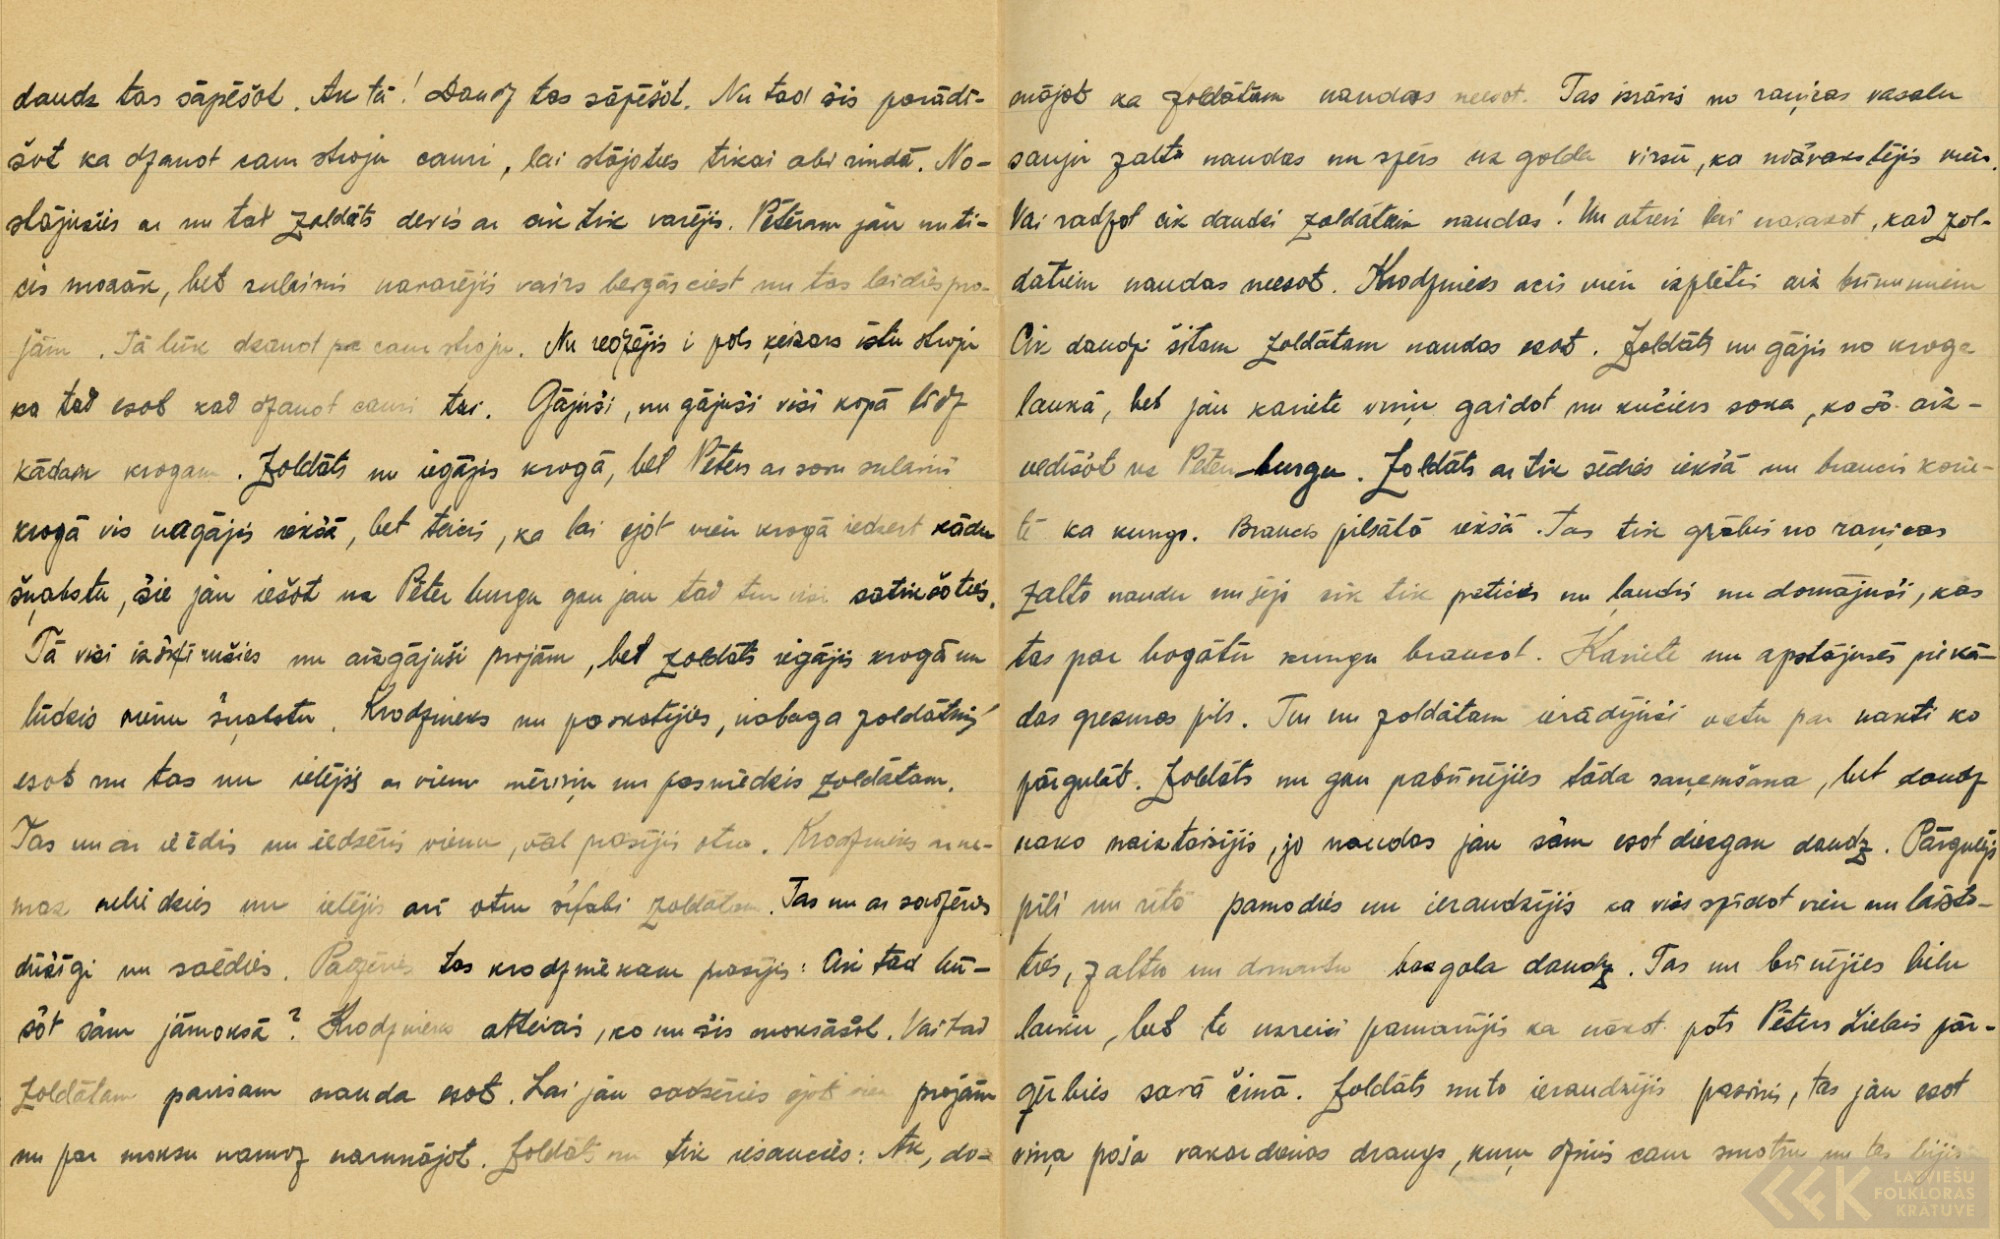 daudz tas sāpēšot. Ak tā! Daudz tas sāpēšot. Nu tad šis parādī-
šot ka dzanot cam stroju cauri, lai stājoties tikai abi rindā. No-
stājušies ar nu tad zoldāts devis ar cik tik varējis. Pēteram jāu nu ti-
cis mazāk, bet sulainis navarējis vairs bergās ciest nu tas laidies pro-
jām. Tā lūk dzanot pa cam stroju. Nu redzējis i pats ķeizars īstu stroju
ka tad esot kad dzanot cauri tai. Gājuši, nu gājuši visi kopā līdz
kādam krogam. Zoldāts nu iegājis krogā, bet Pēters ar savu sulaini
krogā vis nagājis iekšā, bet teicis, ka lai ejot vien krogā iedzert kādu
šņabstu, šie jāu iešot uz Pēter burgu gan jau tad tur visi satikšoties.
Tā visi izšķīrušies nu aizgājuši projām, bet zoldāts iegājis krogā un
lūdzis vienu šņabstu. Krodzinieks nu paskatījies, nabaga zoldātiņš
esot nu tas nu ielējis ar vienu mēriņu nu pasniedzis zoldātam.
Tas nu ar iēdis nu iedzēris vienu, vēl prasījis otru. Krodzinieks nu ne-
maz neliedzies nu ielējis arī otru sīfabi zoldātam. Tas nu ar sadzēries
dūšīgi nu saēdies. Padzēris tas krodziniekam prasījis: Cik tad bū-
šot šam jāmoksā? Krodzinieks atteicis, ko nu šis moksāšot. Vai tad
zoldātam pavisam nauda esot. Lai jāu sadzēries ejot vien projām
nu par moksu namaz narunājot. Zoldāts nu tik iesaucies: Ak, do-
mājot ka zoldātam naudas neesot. Tas izrāvis no raņicas vasalu
sauju zalta naudas nu spēris uz golda virsū, ka nožvakstējis vien.
Vai radzot cik daudzi zoldātam naudas! Nu otreiz lai nasakot, kad zol-
dātiem naudas neesot. Krodzinieks acis vien izplētis aiz brīnumiem
Cik daudzi šitam zoldātam naudas esot. Zoldāts nu gājis no kroga
laukā, bet jāu kariete viņu gaidot nu kučiers soka, ko šo aiz-
vedīšot uz Pēter-burgu. Zoldāts ar tik sēdies iekšā nu braucis karie-
tē ka kungs. Braucis pilsātā iekšā. Tas tik grābis no raņicas
zalta naudu nu sējis cik tik paticies nu ļaudis nu domājuši, kas
tas par bogātu kungu braucot. Kariete nu apstājusēs pie kā-
das greznas pils. Tur nu zoldātam ierādijuši vietu par nakti ko
pārgulāt. Zoldāts nu gan pabrīnējies tāda saņemšana, but daudz
nako naiztaisījis, jo naudas jāu šam esot diezgan daudz. Pārgulējis
pilī nu rītā pamodies nu ieraudzījis ka viss spīdot vien nu laisto-
ties, zalta nu dimantu bazgala daudz. Tas nu brīnējies bilu
laiku, bet te uzreizi pamanījis ka nākot pats Pēters Lielais pār-
ģērbies savā činā. Zoldāts nu to ieraudzījis pazinis, tas jāu esot
viņa paša vakardienas draugs, kuru dzinis cam smotru nu tas bijis